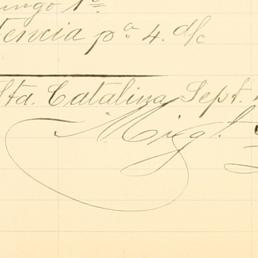 ingo 1º
tencia pª 4. d/c
Sta. Catalina Sept.
Migl.